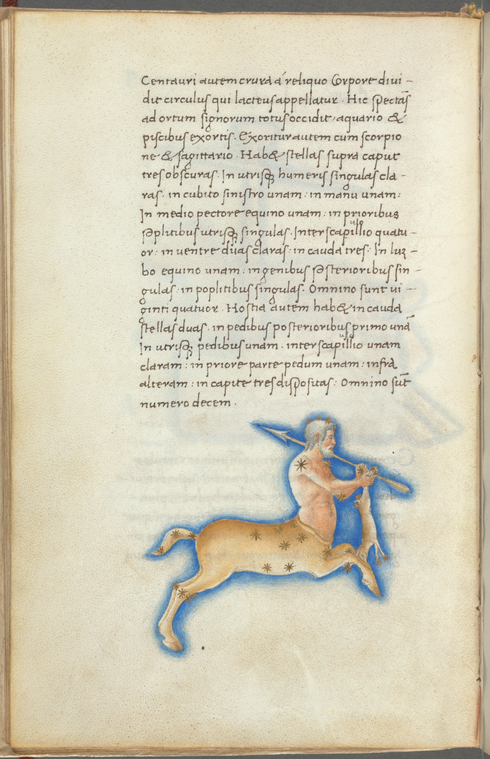 Centauri autem crura a reliquo Corpore divi-
dit circulus qui lacteus appellatur. Hic spectās
ad ortum signorum totus occidit. aquario &
piscibus exortis. Exoritur autem cum scorpio
ne & sagittario. Hab& stellas supra caput
tres obscuras. In utrisq humeris singulas cla-
ras. in cubito sinistro unam. in manu unam.
In medio pectore equino unam. in prioribus
poplitibus utrisq singulas. Inter scapilio quatu-
or. in ventre duas claras. in cauda tres. In lum-
bo equino unam. in genibus posterioribus sin-
gulas. in poplitibus singulas. Omnino sunt vi-
ginti quatuor. Hostia autem hab& in cauda
stellas duas. in pedibus posterioribus primo unā
In utrisq pedibus unam. inter scapilio unam
claram. in priore parte pedum unam. infra
alteram. in capite tres dispositas. Omnino sūt
numero decem.